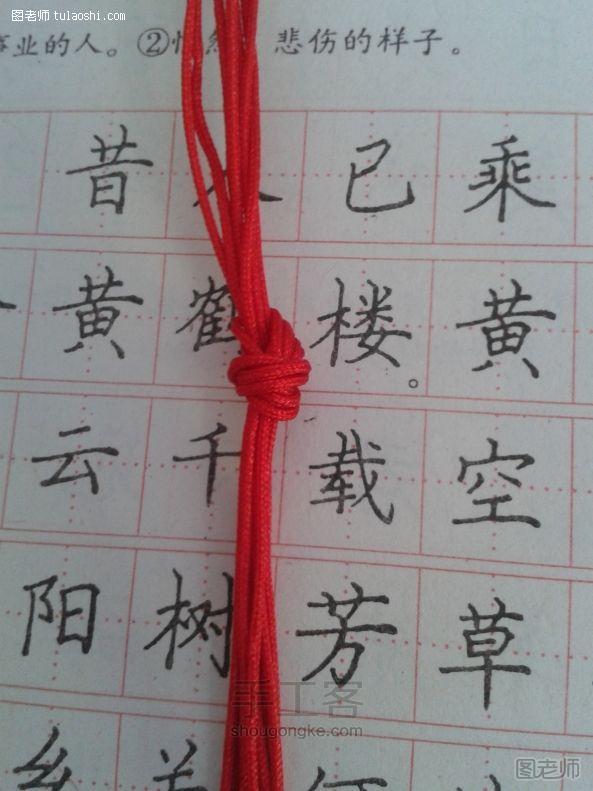 图老师 tulaoshi.com
业的人。② 悲伤的样子。
昔人已乘
黄鹤楼。黄
云千载空
阳树芳草
乡关何
手工客
shougongke.com
图老师